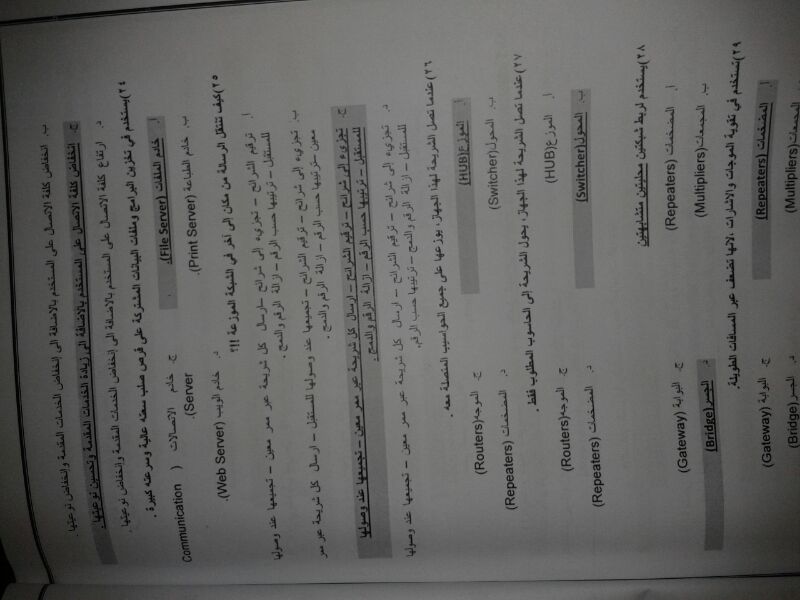 ب. انخفاض كلفة الاتصال على المستخدم بالاضافة الى إنخفاض الخدمات المقدمة وإنخفاض نوعيتها.
ج. انخفاض كلفة الاتصال على المستخدم بالاضافة الى زيادة الخدمات المقدمة وتحسين نوعيتها.
د. ارتفاع كلفة الاتصال على المستخدم بالاضافة الى إنخفاض الخدمات المقدمة وإنخفاض نوعيتها.
٢٤) يستخدم في تخزين البرامج وملفات البيانات المشتركة على قرص صلب سعته عالية وسرعته كبيرة.
أ. خادم الملفات (File Server).
ج. خادم الاتصالات ( Communication
Server).
ب. خادم الطباعة (Print Server).
د. خادم الويب (Web Server).
٢٥) كيف تنتقل الرسالة من مكان الى آخر في الشبكة الموزعة ؟!!
أ. ترقيم الشرائح – تجزيء إلى شرائح – ارسال كل شريحة عبر ممر معين – تجميعها عند وصولها
للمستقبل – ترتيبها حسب الرقم – ازالة الرقم والدمج.
ب. تجزيء إلى شرائح – ترقيم الشرائح – تجميعها عند وصولها للمستقبل – ارسال كل شريحة عبر ممر
معين – ترتيبها حسب الرقم – ازالة الرقم والدمج.
ج. تجزيء إلى شرائح – ترقيم الشرائح – ارسال كل شريحة عبر ممر معين – تجميعها عند وصولها
للمستقبل – ترتيبها حسب الرقم – ازالة الرقم والدمج.
د. تجزيء إلى شرائح – ترقيم الشرائح – ارسال كل شريحة عبر ممر معين – تجميعها عند وصولها
للمستقبل – ازالة الرقم والدمج – ترتيبها حسب الرقم.
٢٦) عندما تصل الشريحة لهذا الجهاز، يوزعها على جميع الحواسيب المتصلة معه.
أ. الموزع (HUB)
ج. الموجه (Routers)
ب. المحول (Switcher)
د. المضخمات (Repeaters)
٢٧) عندما تصل الشريحة لهذا الجهاز، يحول الشريحة إلى الحاسوب المطلوب فقط.
أ. الموزع (HUB)
ج. الموجه (Routers)
ب. المحول (Switcher)
د. المضخمات (Repeaters)
٢٨) يستخدم لربط شبكتين محليتين متشابهتين
أ. المضخمات (Repeaters)
ج. البوابة (Gateway)
ب. المجمعات (Multipliers)
د. الجسر (Bridge)
٢٩) تستخدم في تقوية الموجات والاشارات، لانها تضعف عبر المسافات الطويلة.
أ. المضخمات (Repeaters)
ج. البوابة (Gateway)
ب. المجمعات (Multipliers)
د. الجسر (Bridge)